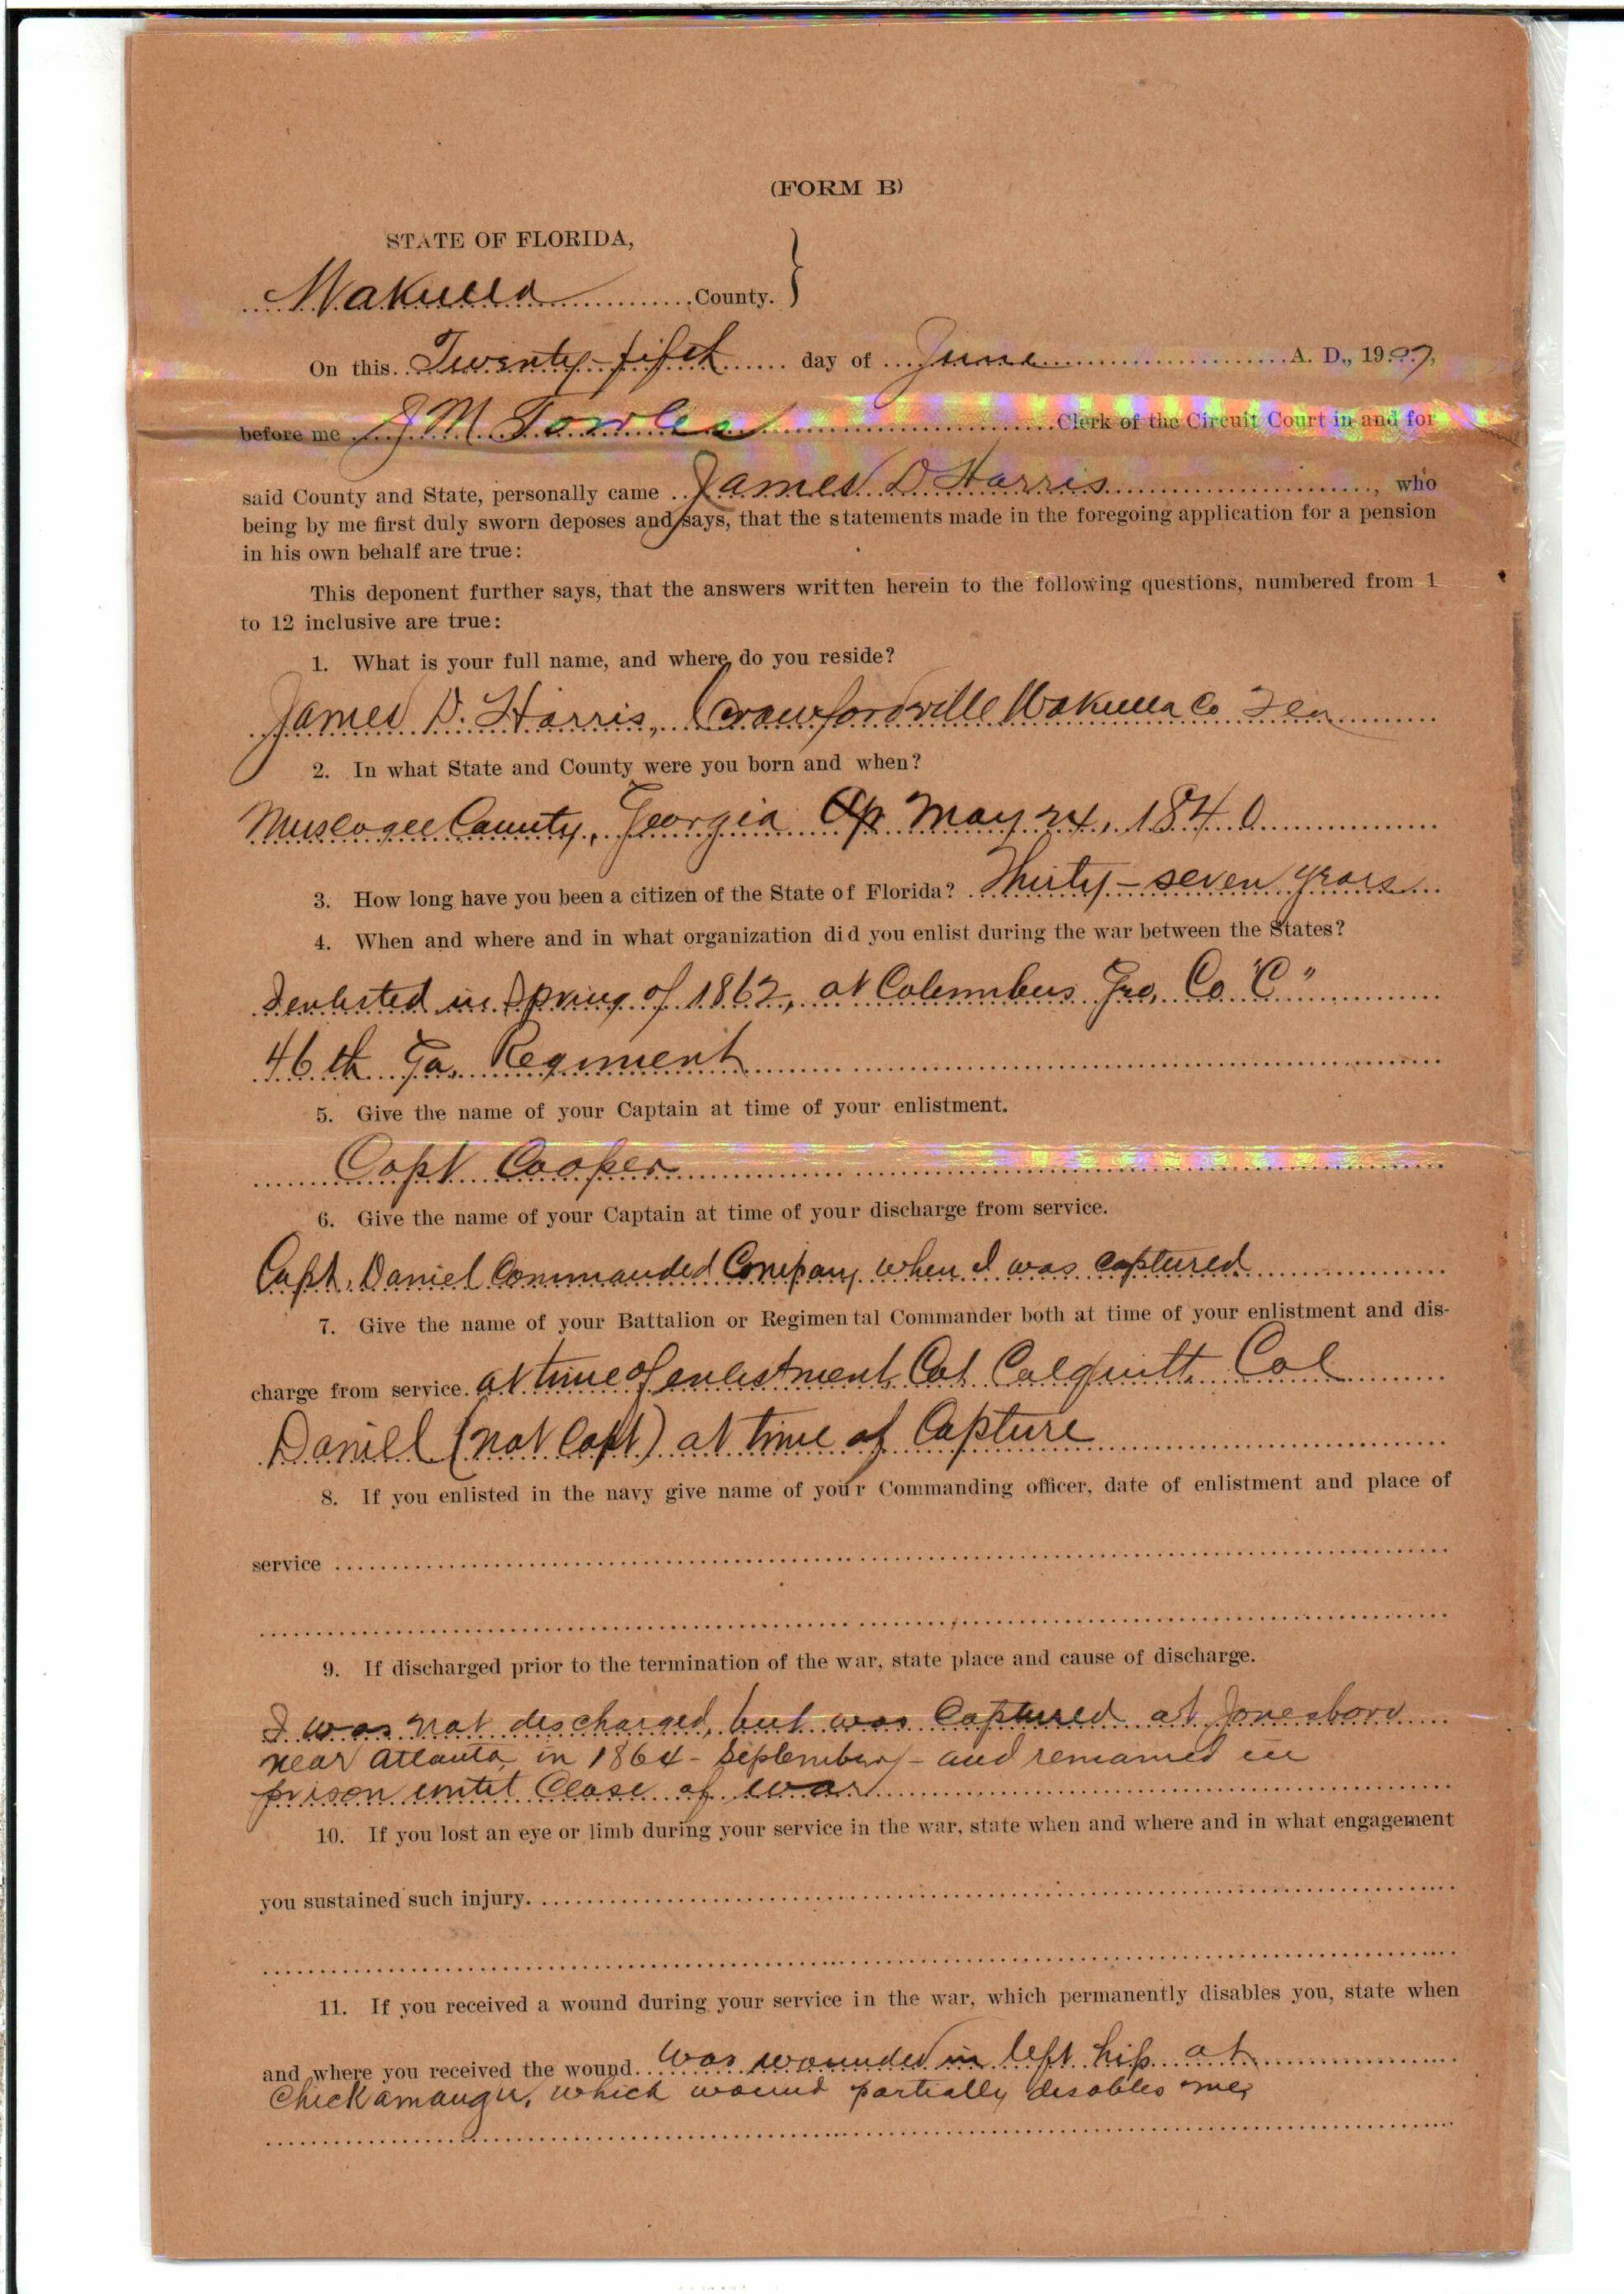 (FORM B)
STATE OF FLORIDA,
Wakulla County.
On this Twenty-fifth day of June A. D., 1907,
before me J M Towles Clerk of the Circuit Court in and for
said County and State, personally came James D Harris, who
being by me first duly sworn deposes and says, that the statements made in the foregoing application for a pension
in his own behalf are true:
This deponent further says, that the answers written herein to the following questions, numbered from 1
to 12 inclusive are true:
1. What is your full name, and where do you reside?
James D. Harris, Crawfordville Wakulla Co Fla
2. In what State and County were you born and when?
Muscogee County, Georgia Ap May 24, 1840
3. How long have you been a citizen of the State of Florida? Thirty-seven years
4. When and where and in what organization did you enlist during the war between the States?
I enlisted in Spring of 1862, at Columbus Geo, Co "C"
46th Ga. Regiment
5. Give the name of your Captain at time of your enlistment.
Capt Cooper
6. Give the name of your Captain at time of your discharge from service.
Capt. Daniel Commanded Company when I was captured
7. Give the name of your Battalion or Regimental Commander both at time of your enlistment and dis-
charge from service. at time of enlistment, Col Colquitt. Col
Daniel (not Capt) at time of Capture
8. If you enlisted in the navy give name of your Commanding officer, date of enlistment and place of
service
9. If discharged prior to the termination of the war, state place and cause of discharge.
I was not discharged, but was Captured at Jonesboro
near Atlanta, in 1864 - September - and remained in
prison until Close of war
10. If you lost an eye or limb during your service in the war, state when and where and in what engagement
you sustained such injury.
11. If you received a wound during your service in the war, which permanently disables you, state when
and where you received the wound. Was wounded in left hip at
Chickamauga, which wound partially disables me,